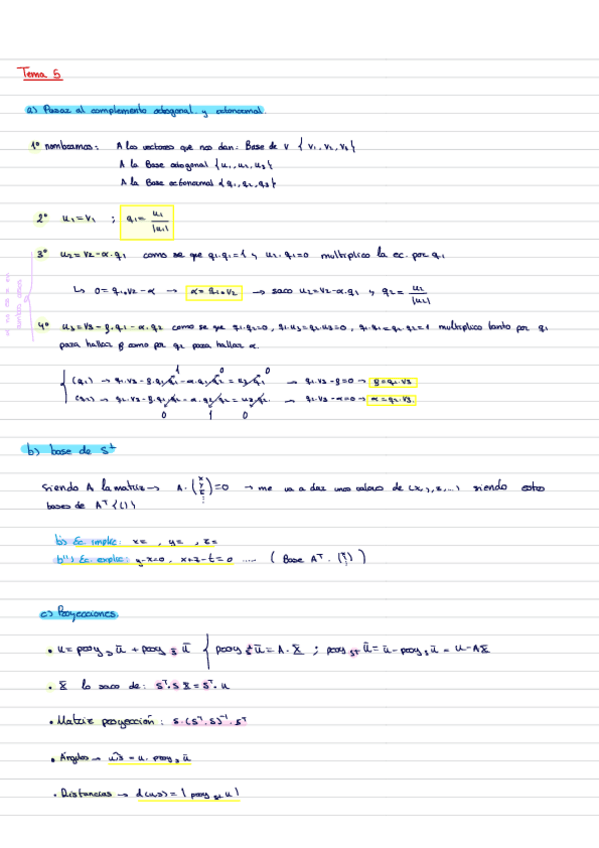 Tema 5
a) Pasar al complemento ortogonal y ortonormal.
1º nombramos: A los vectores que nos dan: Base de V { V₁, V₂, V₃ }
A la Base ortogonal { u₁, u₂, u₃ }
A la Base ortonormal { q₁, q₂, q₃ }
2º u₁ = V₁ ; q₁ = u₁/|u₁|
3º u₂ = V₂ - α·q₁ como se que q₁·q₁ = 1 y u₂·q₁ = 0 multiplico la ec. por q₁
↳ 0 = q₁·V₂ - α → α = q₁·V₂ → saco u₂ = V₂ - α·q₁ y q₂ = u₂/|u₂|
4º u₃ = V₃ - β·q₁ - α·q₂ como se que q₁·q₂ = 0, q₁·u₃ = q₂·u₃ = 0, q₁·q₁ = q₂·q₂ = 1 multiplico tanto por q₁
para hallar β como por q₂ para hallar α.
1 0 0
(q₁) → q₁·V₃ - β·q₁·q₁ - α·q₂·q₁ = u₃·q₁ → q₁·V₃ - β = 0 → β = q₁·V₃
(q₂) → q₂·V₃ - β·q₁·q₂ - α·q₂·q₂ = u₃·q₂ → q₂·V₃ - α = 0 → α = q₂·V₃.
0 1 0
b) base de S⊥
Siendo A la matriz → A · (x y z ⋮) = 0 → me va a dar unos valores de (x, y, z, ...) siendo estos
bases de Aᵀ {()}
b') Ec. implic: x= , y= , z=
b'') Ec. explic: y-x=0, x+z-t=0 ..... ( Base Aᵀ · (x y ⋮) )
c) Proyecciones.
• u = proy s ū + proy s ū { proy s⊥ ū = A · x̄ ; proy s⊥ ū = ū - proy s ū = u - Ax̄
• x̄ lo saco de: Sᵀ·S x̄ = Sᵀ·u
• Matriz proyección: S·(Sᵀ·S)⁻¹·Sᵀ
• Ángulos → u,s = u · proy s ū
• Distancias → d(u,s) = | proy s⊥ u |